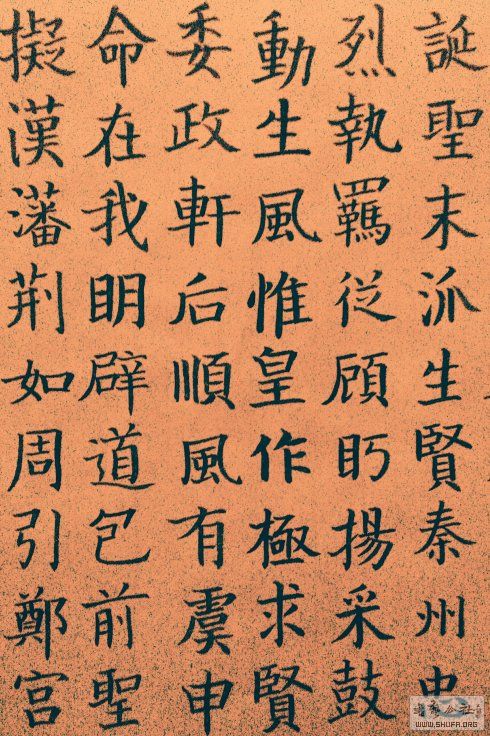 誕聖末派生賢秦州
烈執羈從顧眄揚采鼓
動生風惟皇作極求賢
委政軒后順風有虞申
命在我明辟道包前聖
擬漢藩荊如周引鄭宮
WWW.SHUFA.ORG